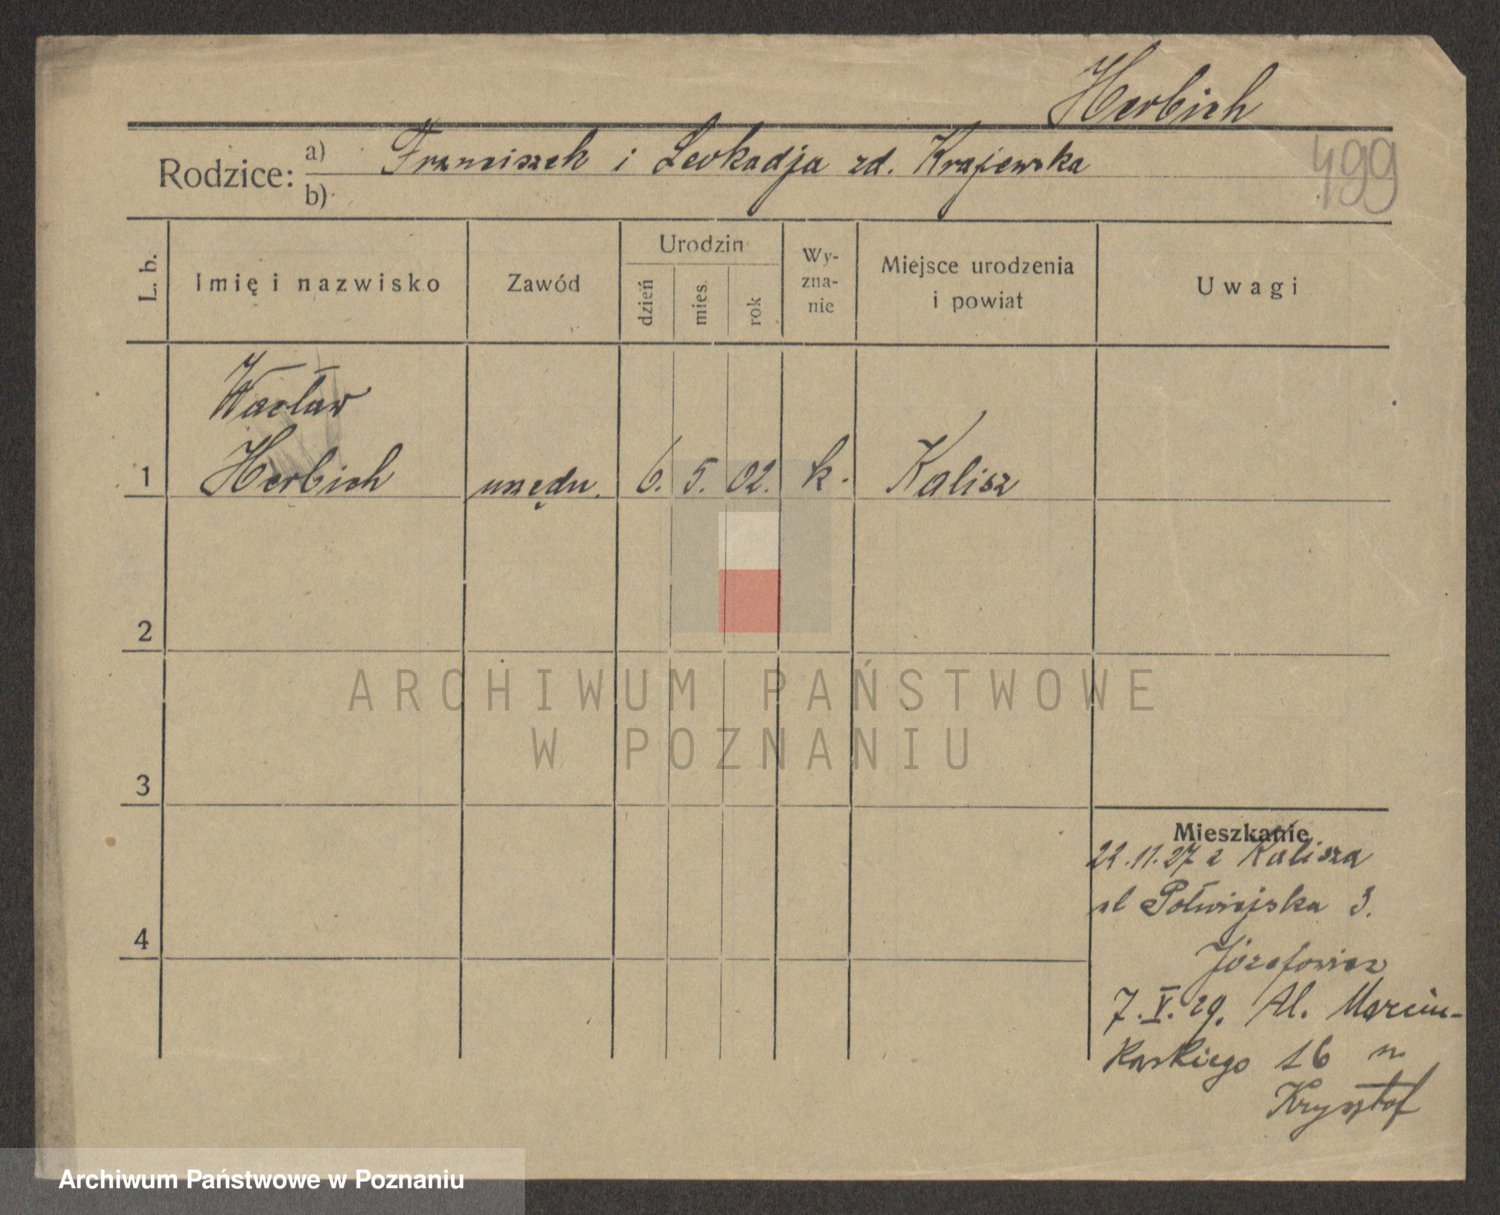 Herbich
Rodzice: a) Franciszek i Leokadja zd. Krajewska
b)
499
L. b.
Imię i nazwisko
Zawód
Urodzin
dzień
mies.
rok
Wy-
zna-
nie
Miejsce urodzenia
i powiat
Uwagi
Wacław
1 Herbich urzędn. 6. 5. 02. k. Kalisz
2
3
4
ARCHIWUM PAŃSTWOWE
W POZNANIU
Mieszkanie
22.11.27 z Kalisza
ul Półwiejska 3.
Józefowicz
7.V.29. Al. Marcin-
kowskiego 16 m
Krysztof
Archiwum Państwowe w Poznaniu